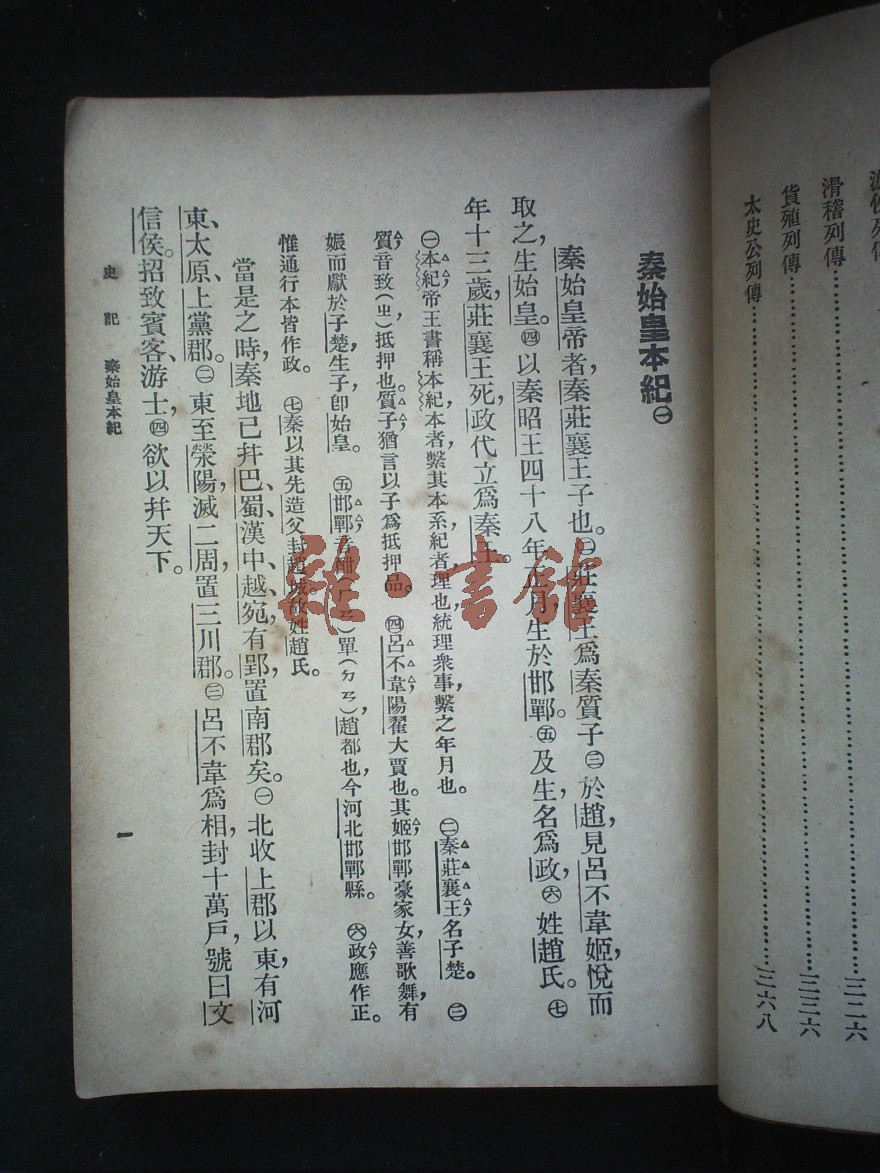 游俠列傳
滑稽列傳……三二六
貨殖列傳……三三六
太史公列傳……三六八
秦始皇本紀㊀
秦始皇帝者，秦莊襄王子也。㊁莊襄王爲秦質子㊂於趙，見呂不韋姬，悅而
取之，生始皇。㊃以秦昭王四十八年正月生於邯鄲。㊄及生，名爲政，㊅姓趙氏。㊆
年十三歲，莊襄王死，政代立爲秦王。
㊀本紀，帝王書稱本紀，本者，繫其本系，紀者理也，統理衆事，繫之年月也。㊁秦莊襄王，名子楚。㊂
質，音致（ㄓ），抵押也。質子，猶言以子爲抵押品。㊃呂不韋，陽翟大賈也。其姬，邯鄲豪家女，善歌舞，有
娠而獻於子楚，生子卽始皇。㊄邯鄲，音酣（ㄏㄢ）單（ㄉㄢ），趙都也，今河北邯鄲縣。㊅政，應作正。
惟通行本皆作政。㊆秦以其先造父封趙城，故姓趙氏。
當是之時，秦地已幷巴、蜀、漢中，越宛有郢，置南郡矣。㊀北收上郡以東，有河
東、太原、上黨郡。㊁東至滎陽，滅二周，置三川郡。㊂呂不韋爲相，封十萬戶，號曰文
信侯。招致賓客、游士，㊃欲以幷天下。
史記 秦始皇本紀
一
雜·書館